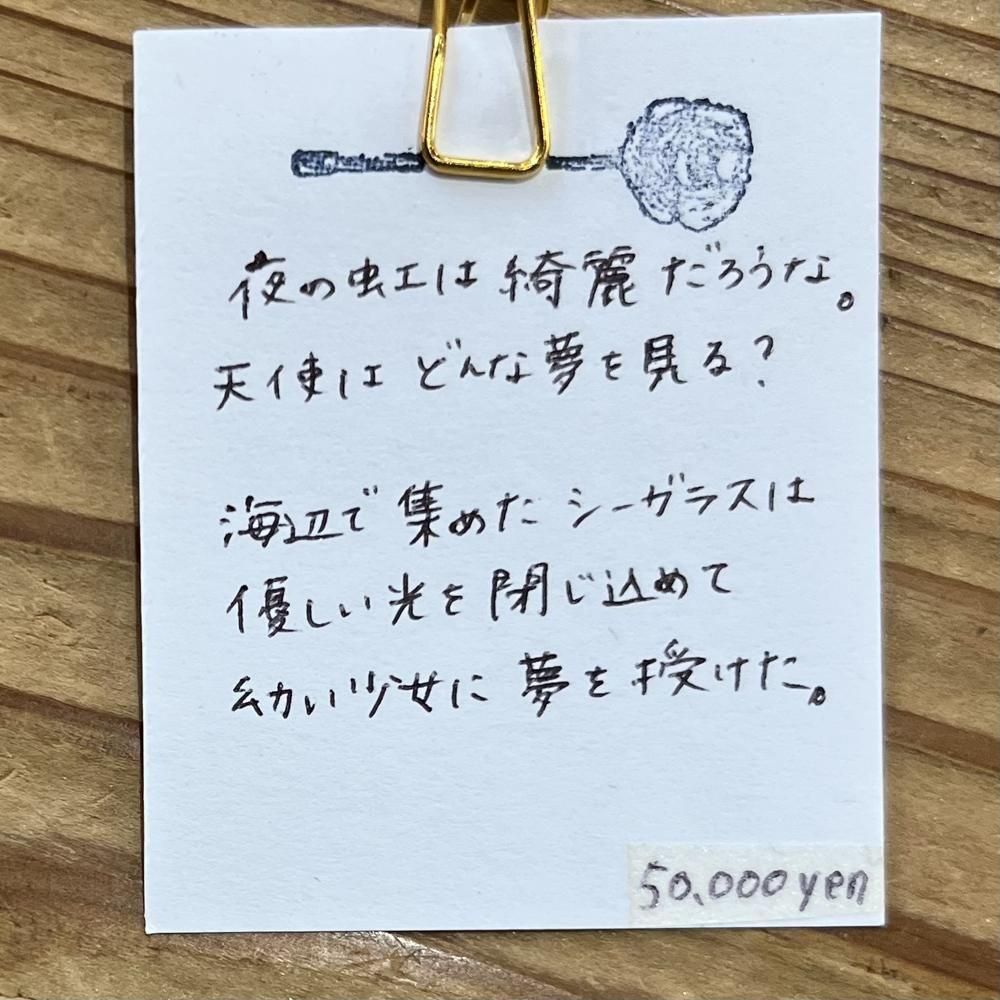 夜の虹は綺麗だろうな。
天使はどんな夢を見る?
海辺で集めたシーガラスは
優しい光を閉じ込めて
幼い少女に夢を授けた。
50.000yen